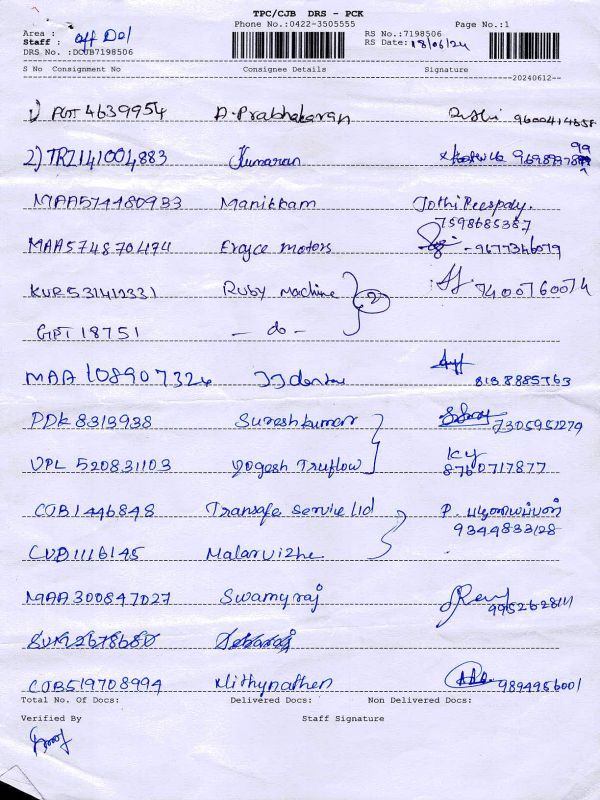 TPC/CJB DRS - PCK
Phone No.:0422-3505555 Page No.:1
Area : RS No.:7198506
Staff : off Del RS Date: 18/06/24
DRS No. :DCUB7198506
S No Consignment No Consignee Details Signature
20240612
1) PGT 4639954 D. Prabhakaran 9600414658
2) TRZ141004883 Kumaran
MAA574480933 Manikkam 7598685387
MAA574870494 Erayce motors 9677346079
KUR531412331 Ruby Machine 2 7400760074
GPT 18751 - do -
MAA108907324 JJ dental 818 8885763
PDK 8313938 Sureshkumar 7305951279
VPL 520831103 Yogesh Truflow 8760717877
COB1446848 Transafe Service ltd P.
9344833128
CUB1116145 Malarvizhe
MAA300847027 Swamyraj
COB519708994 Mithynathen 9894956001
Total No. Of Docs: Delivered Docs: Non Delivered Docs:
Verified By Staff Signature